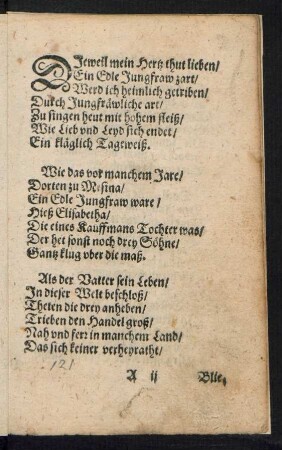 DJeweil mein Hertz thut lieben/
Ein Edle Jungfraw zart/
Werd ich heimlich getriben/
Durch Jungfräwliche art/
Zu singen heut mit hohem fleiß/
Wie Lieb vnd Leyd sich endet/
Ein kläglich Tageweiß.
Wie das vor manchem Jare/
Dorten zu Messina/
Ein Edle Jungfraw ware/
Hieß Elisabetha/
Die eines Kauffmans Tochter was/
Der het sonst noch drey Söhne/
Gantz klug vber die maß.
Als der Vatter sein Leben/
In dieser Welt beschloß/
Theten die drey anheben/
Trieben den Handel groß/
Nah vnd ferr in manchem Land/
Das sich keiner verheyrath/
121
A ij Blie,